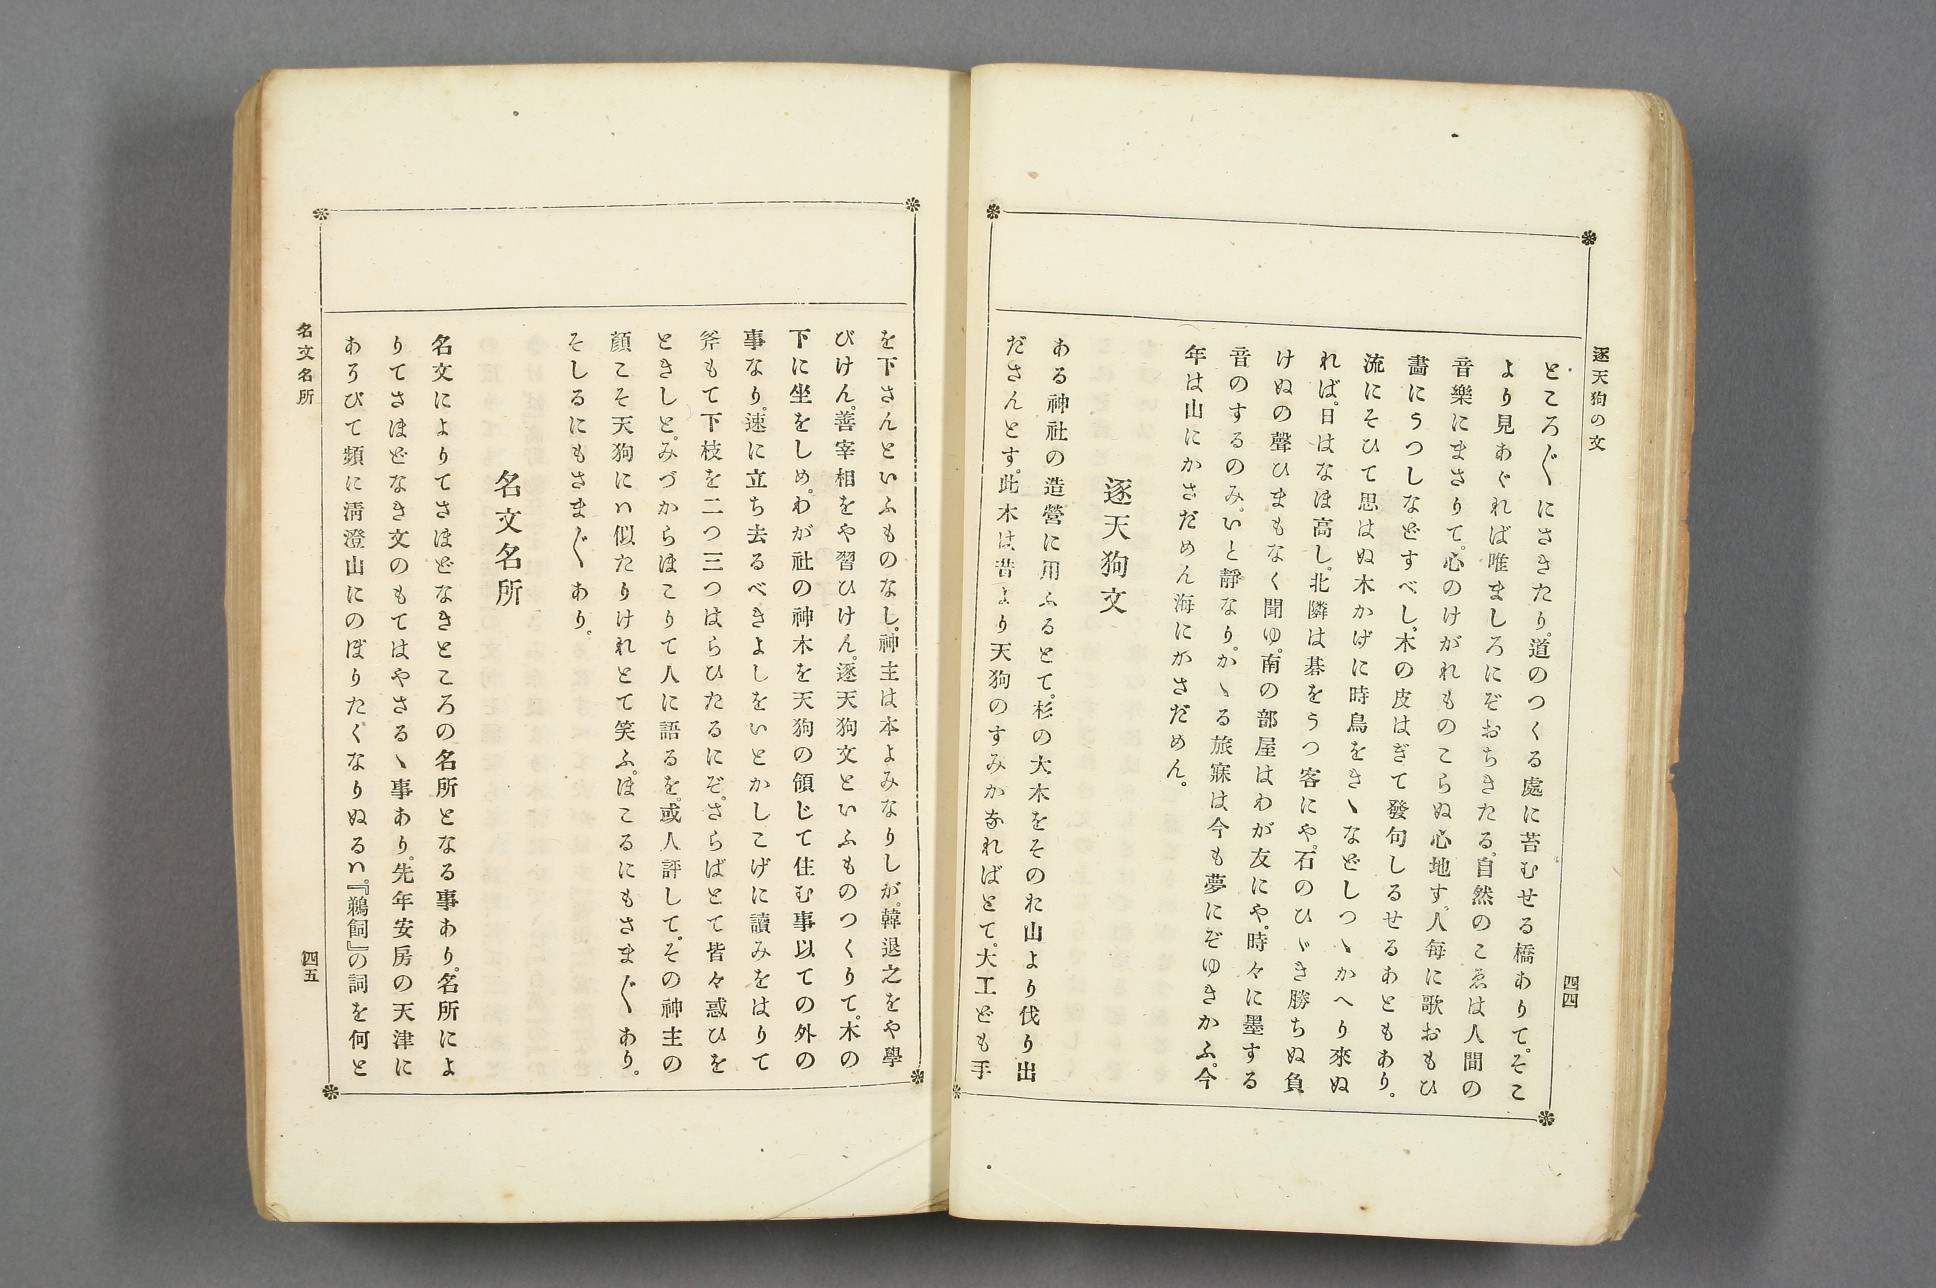 逐天狗の文
四四
ところ〴〵にさきたり。道のつくる處に苔むせる橋ありて。そこ
より見あぐれば唯ましろにぞおちきたる。自然のこゑは人間の
音樂にまさりて。心のけがれものこらぬ心地す。人每に歌おもひ
畵にうつしなどすべし。木の皮はぎて發句しるせるあともあり。
流にそひて思はぬ木かげに時鳥をきゝなどしつゝかへり來ぬ
れば。日はなほ高し。北隣は碁をうつ客にや。石のひゞき勝ちぬ負
けぬの聲ひまもなく聞ゆ。南の部屋はわが友にや。時々に墨する
音のするのみ。いと靜なり。かゝる旅寐は今も夢にぞゆきかふ。今
年は山にかさだめん海にかさだめん。
逐天狗文
ある神社の造營に用ふるとて。杉の大木をそのれ山より伐り出
ださんとす。此木は昔より天狗のすみかなればとて。大工ども手
を下さんといふものなし。神主は本よみなりしが。韓退之をや學
びけん。善宰相をや習ひけん。逐天狗文といふものつくりて。木の
下に坐をしめ。わが社の神木を天狗の領じて住む事以ての外の
事なり。速に立ち去るべきよしをいとかしこげに讀みをはりて
斧もて下枝を二つ三つはらひたるにぞ。さらばとて皆々惑ひを
ときしと。みづからほこりて人に語るを。或人評して。その神主の
顏こそ天狗にハ似たりけれとて笑ふ。ほこるにもさま〴〵あり。
そしるにもさま〴〵あり。
名文名所
名文によりてさほどなきところの名所となる事あり。名所によ
りてさほどなき文のもてはやさるゝ事あり。先年安房の天津に
あそびて頻に淸澄山にのぼりたくなりぬるハ。『鵜飼』の詞を何と
名文名所
四五